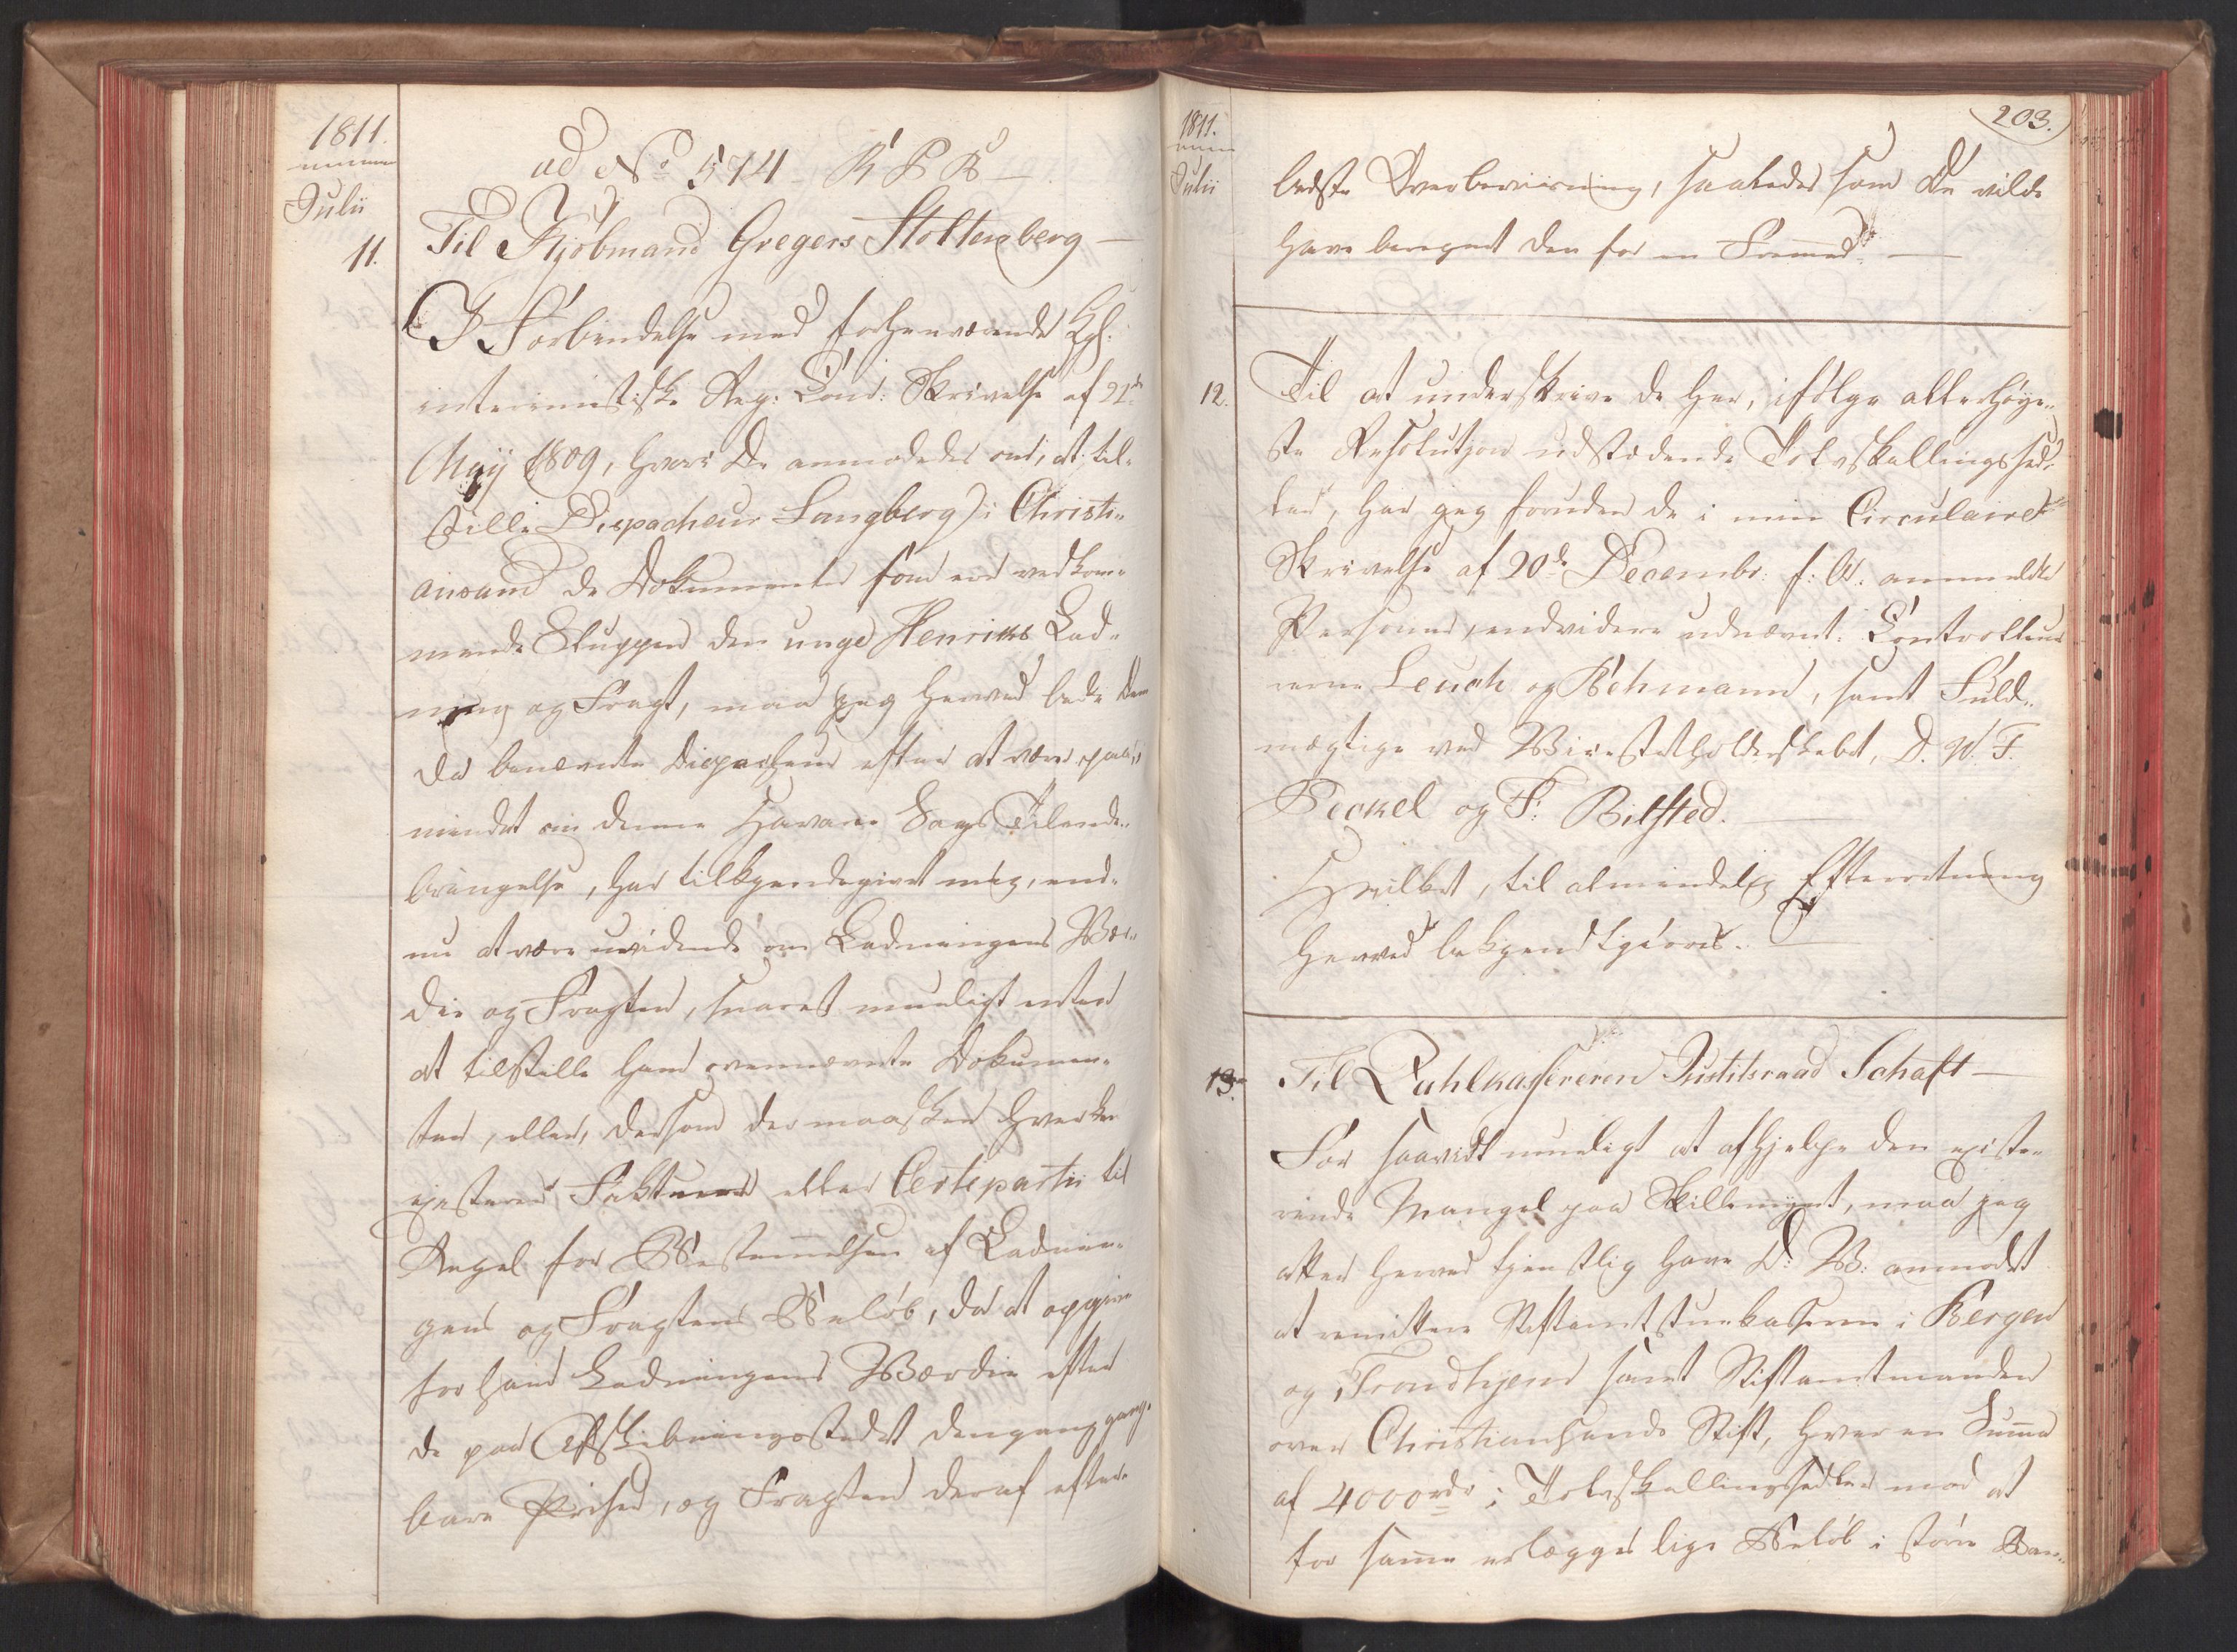 1811.
Julii
11.
ad No 574 K P K
Til Kjøbmand Gregers Stoltenberg
I Forbindelse med forhenværende Kgl:
interimistiske Reg: Com: Skrivelse af 21de
May 1809, hvori De anmodedes om, at til-
stille Dispacheur Langberg i Christi-
ansand de Dokumenter som ere vedkom-
mende Sluppen den unge Henriks Lad-
ning og Fragt, maa jeg herved bede Dem
da benævnte Dispacheur efter at være paa-
mindet om denne Havarie Sags Tilende-
bringelse, har tilkjendegivet mig, end-
nu at være uvidende om Ladningens Vær-
die og Fragten, snarest mueligt enten
at tilstille ham ovennævnte Dokumen-
ter, eller, dersom der maaskee hverken
existerer Faktura eller Certepartie til
Regel for Bestemmelsen af Ladnin-
gens og Fragtens Beløb, da at opgive
for ham Ladningens Værdie efter
de paa Afskibningsstedet dengang gang-
bare Priser, og Fragten deraf efter
1811.
Julii
203.
bedste Overbeviisning, saaledes som De vilde
have beregnet den for en Fremmed.
12.
Til at underskrive de her, ifølge allerhøye-
ste Resolution udstædende Tolvskillingssed-
ler, har jeg foruden de i min Circulaire
Skrivelse af 20de Decembr: f: A: anmeldte
Personer, endvidere udnævnt: Controlleur
erne Leuch og Behmann, samt Fuld-
mægtige ved Vicestatholderskabet, D. W. F.
Peckel og F: Bilsted.
Hvilket, til almindelig Efterretning
herved bekjendtgiøres.
13.
Til Zahlkassereren Justitsraad Schaft
For saavidt mueligt at afhjelpe den existe-
rende Mangel paa Skillemynt, maa jeg
atter herved tjenstlig have D: V: anmodet
at remittere Stiftamtstuekasserne i Bergen
og Trondhjem samt Stiftamtmanden
over Christiansands Stift, hver en Summa
af 4000 rdr i Tolvskillingssedler mod at
for samme erlægges lige Beløb i større Ban-